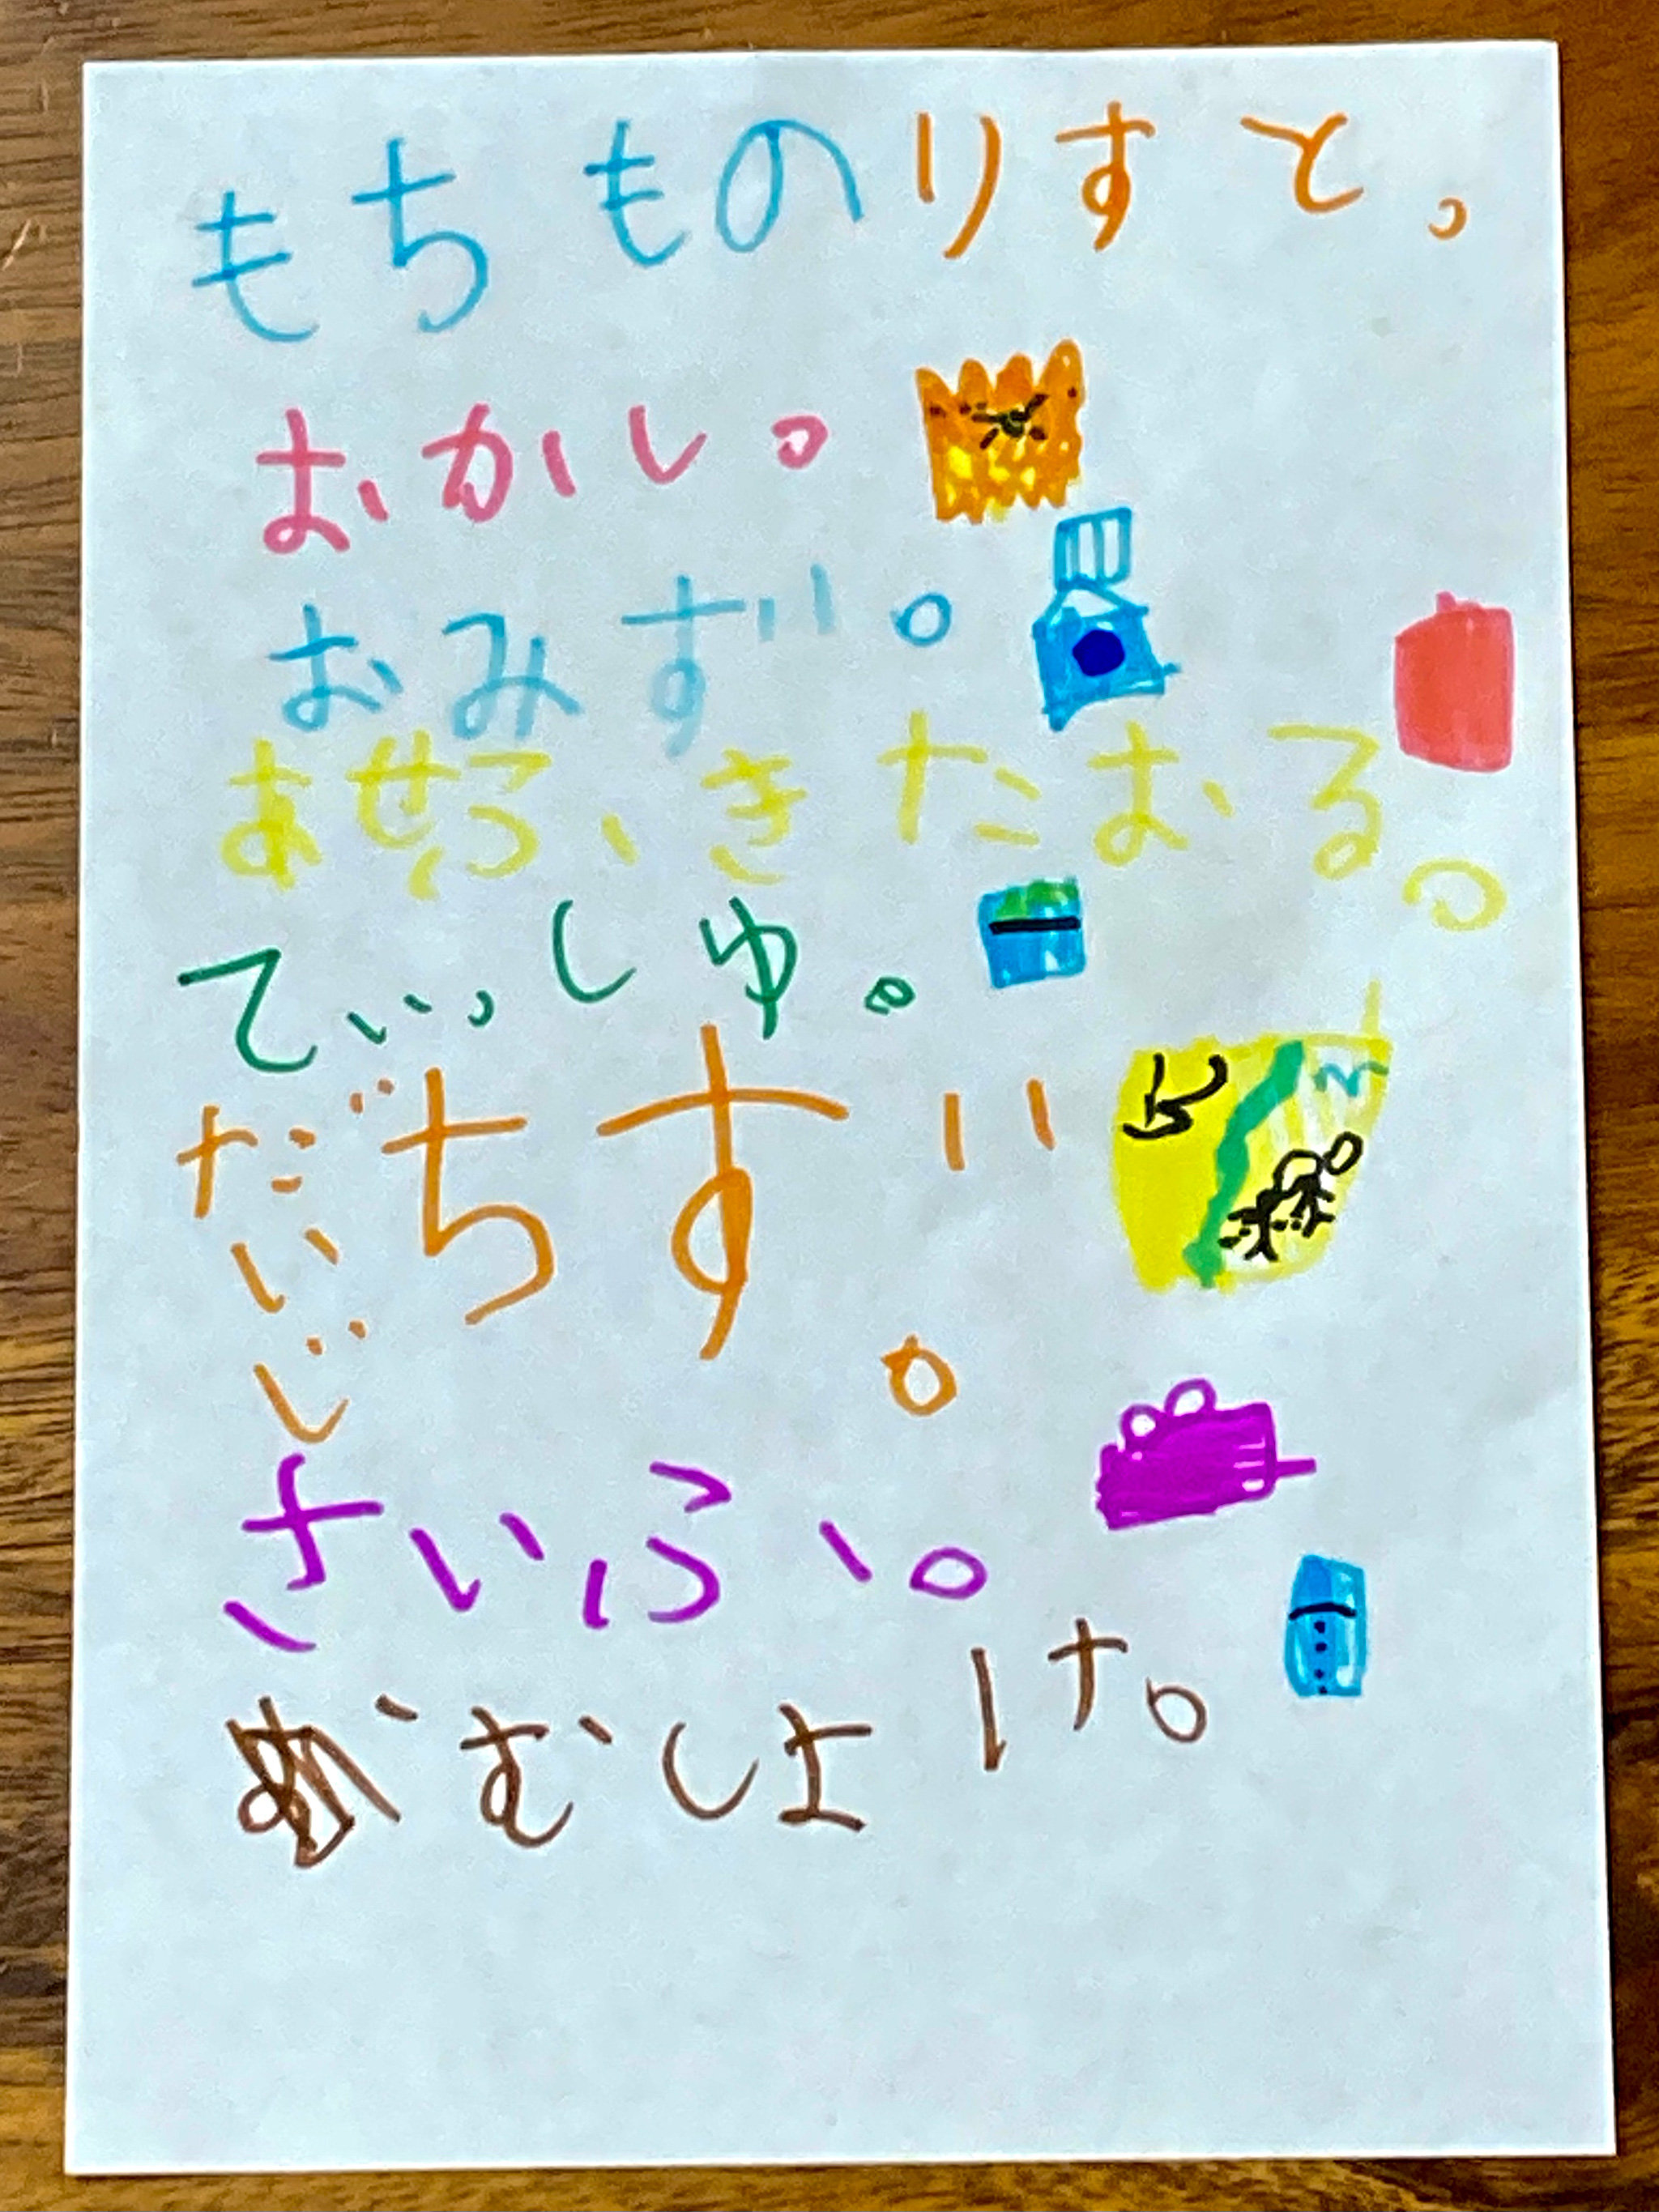 もちものりすと。
おかし。
おみず。
あせふきたおる。
てぃっしゅ。
だいじ
ちず。
さいふ。
むしよけ。